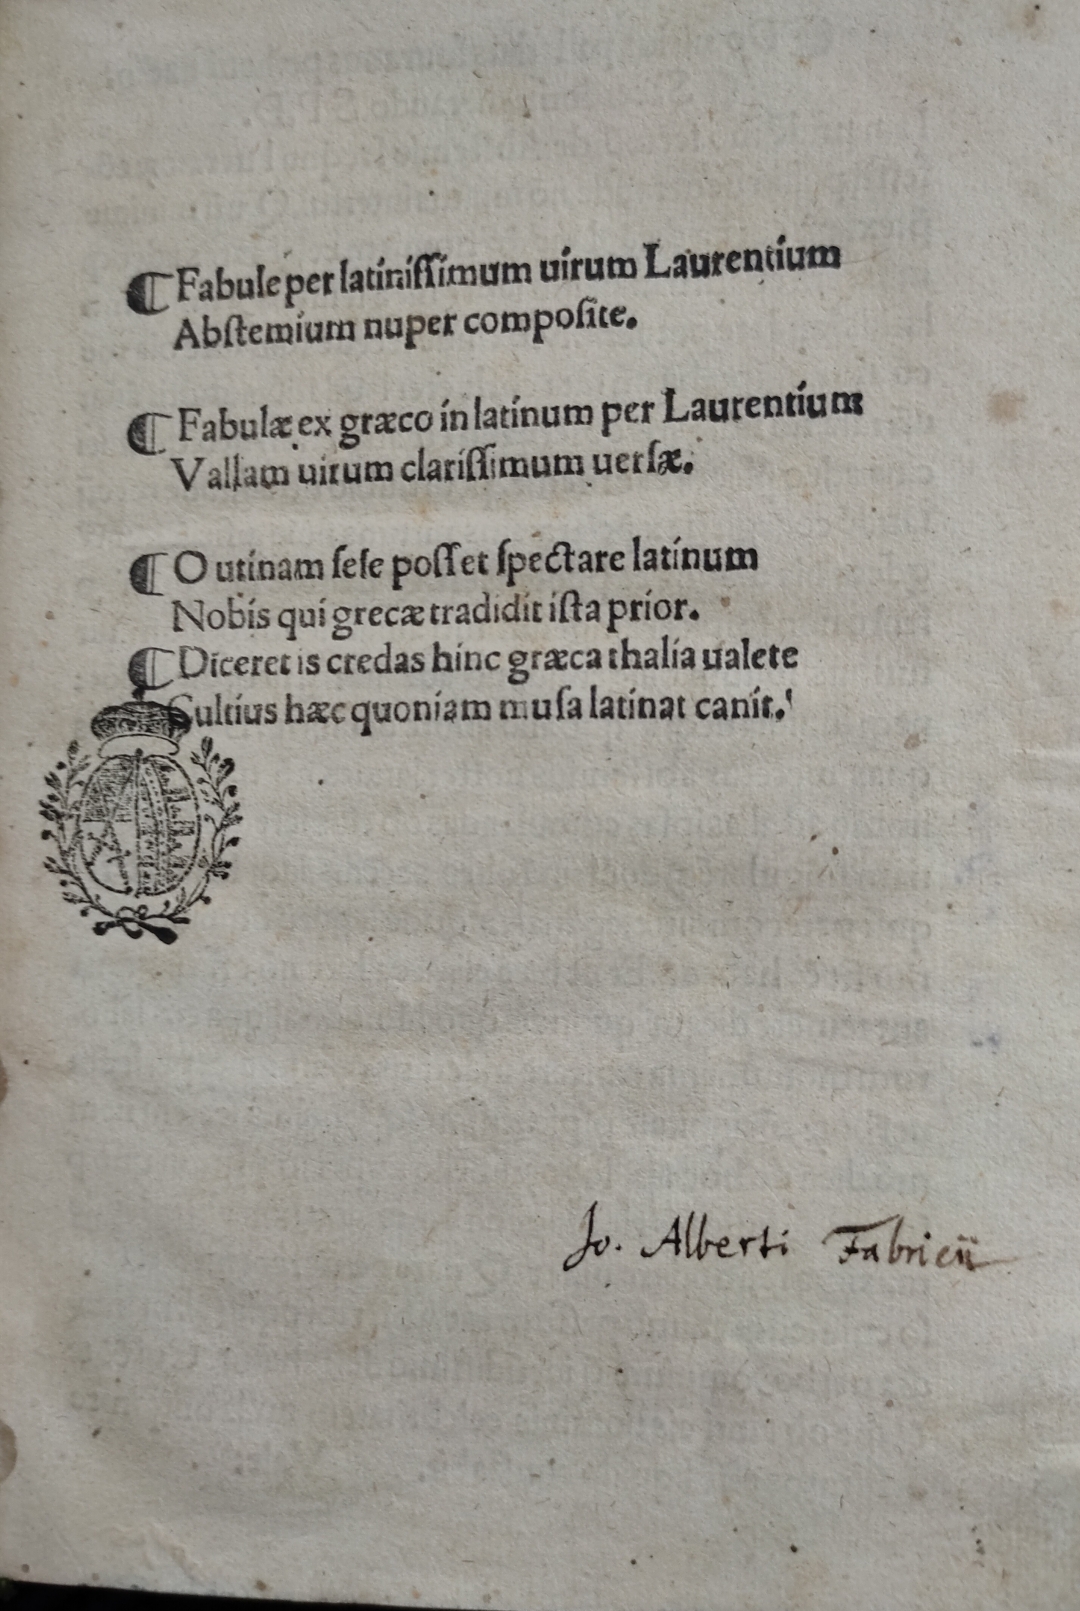 ¶ Fabule per latiniſſimum uirum Laurentium
Abſtemium nuper compoſite.
¶ Fabulæ ex græco in latinum per Laurentium
Vallam uirum clariſſimum uerſæ.
¶ O utinam ſeſe poſſet ſpectare latinum
Nobis qui grecæ tradidit iſta prior.
¶ Diceret is credas hinc græca thalia ualete
Cultius hæc quoniam muſa latinat canit.
Jo. Alberti Fabricii